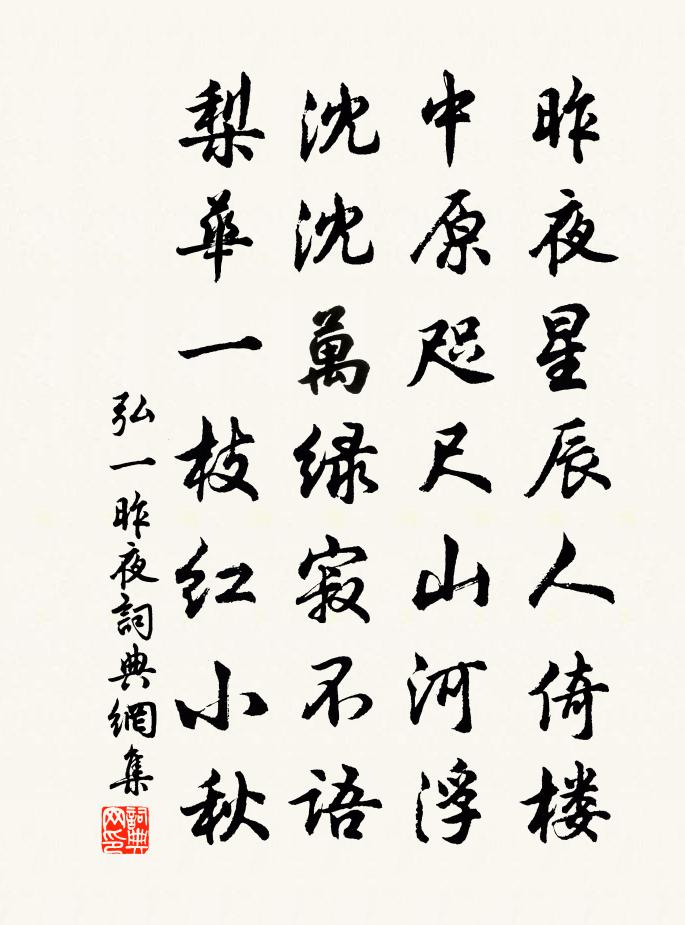 昨夜星辰人倚楼
中原咫尺山河浮
沈沈萬绿寂不语
梨華一枝红小秋
弘一昨夜詞典網集
詞典网印